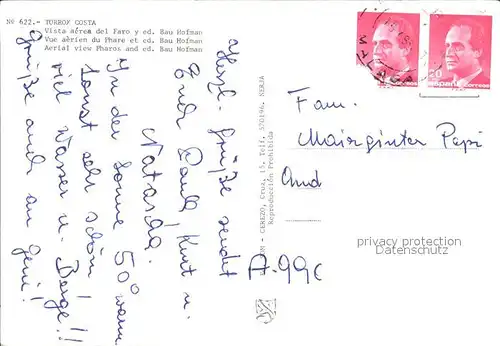 Nº 622.- TORROX COSTA
Vista aérea del Faro y ed. Bau Hofman
Vue aérien du Phare et ed. Bau Hofman
Aerial view Pharos and ed. Bau Hofman
Herzl. Grüße sendet
Euch Paul, Kurt u.
Natascha.
In der Sonne 50° warm
sonst sehr schön!
viel Wasser u. Berge!!
Grüße auch an
Geni!
CEREZO, Cruz, 15. Telf. 520196. NERJA
Reproducción Prohibida
20
España correos
MALAGA
Fam.
Mairginter Pepi
And
privacy protection
Datenschutz
A-99c